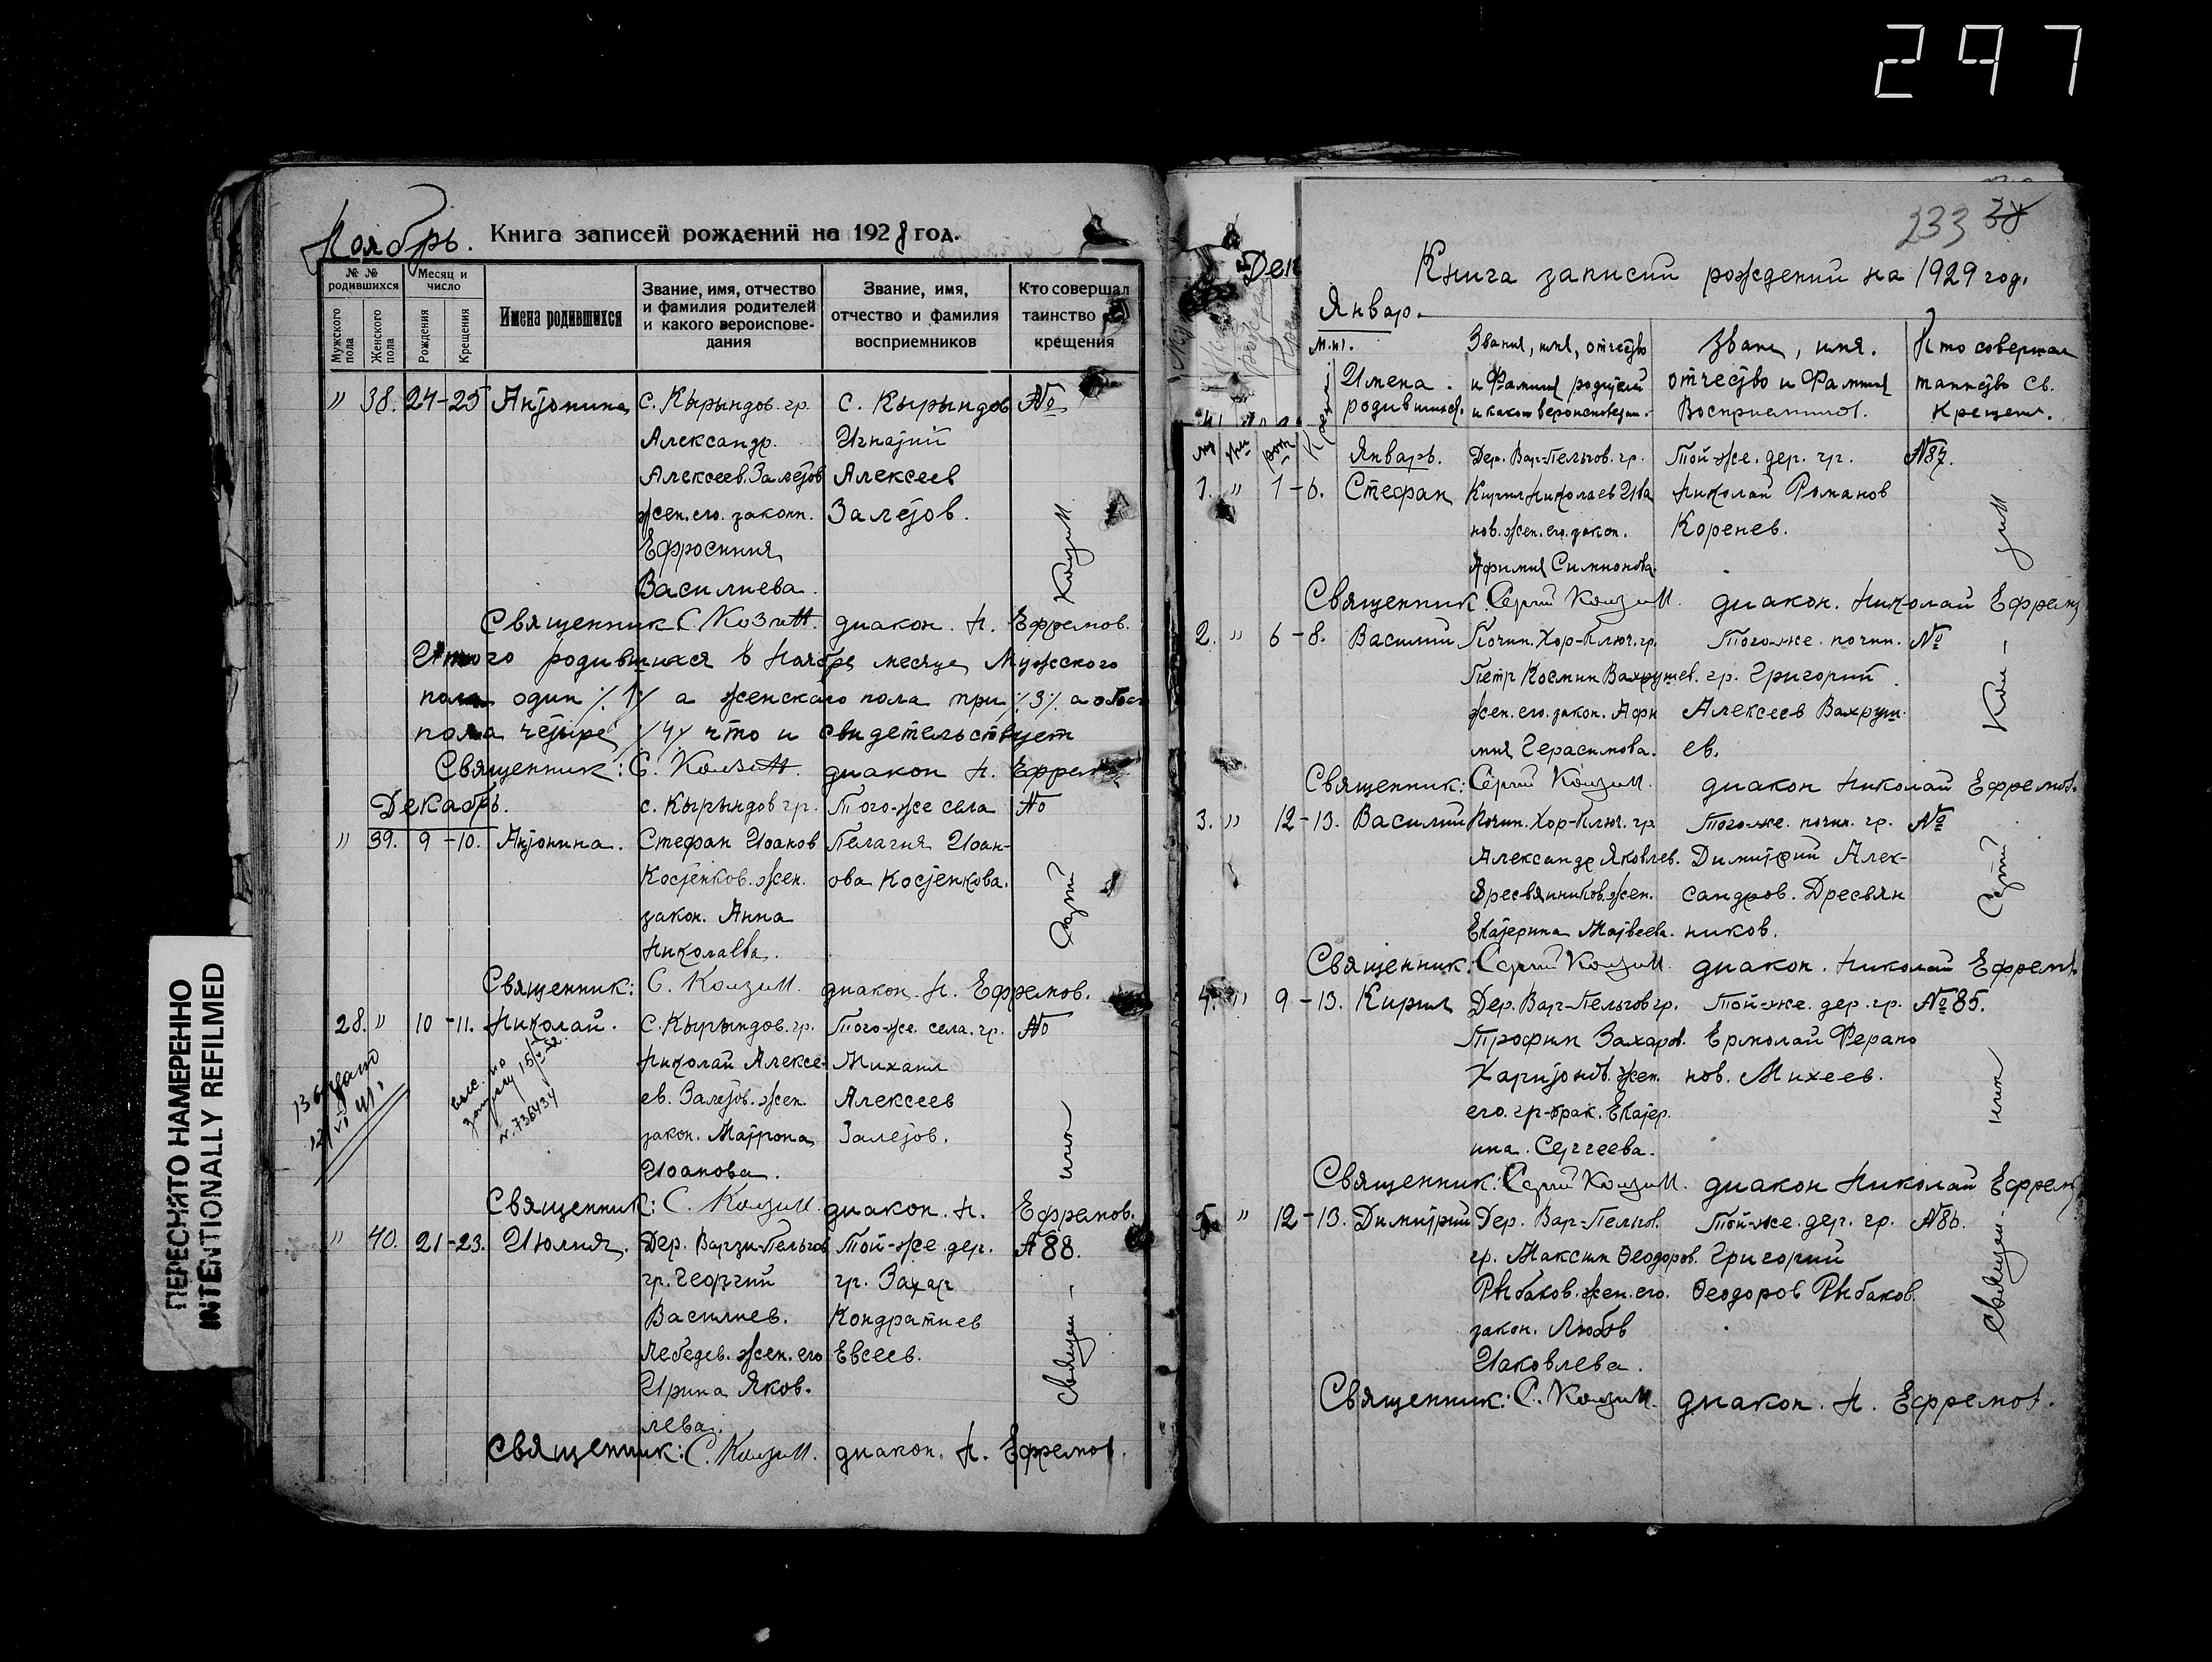 297
ПЕРЕСНЯТО НАМЕРЕННО
INTENTIONALLY REFILMED
Ноябрь. Книга записей рождений на 1928 год.
№ № родившихся
Мужского пола
Женского пола
Месяц и число
Рождения
Крещения
Имена родившихся
Звание, имя, отчество и фамилия родителей и какого вероиспове-дания
Звание, имя, отчество и фамилия восприемников
Кто совершал таинство крещения
" 38. 24-25 Антонина с. Кырындов. гр. с. Кырындов №
Александр. Игнатий
Алексеев. Залетов Алексеев
жен. его. законн. Залетов.
Ефросиния
Василиева.
Священник С. Козит. диакон. Н. Ефремов.
Итого родившихся в Ноябре месяце Мужского
пола один /1/ а женскаго пола три /3/ а обоего
пола четыре /4/ что и свидетельствует
Священник: С. диакон Н. Ефремов
Декабрь. с. Кырындов гр. Того-же села №
" 39. 9-10. Антонина. Стефан Иоанов Пелагия Иоан-
Костенков. жен. ова Костенкова.
закон. Анна
Николаева.
Священник: С. диакон. Н. Ефремов.
28. " 10-11. Николай. с. Кырындов. гр. Того-же села. гр. №
Николай Алексе- Михаил
ев. Залетов. жен. Алексеев
закон. Матрона Залетов.
Иоанова.
Священник: С. диакон. Н. Ефремов.
" 40. 21-23. Июлия. Дер. Варзи-Пельгов Той-же дер. №88.
гр. Георгий гр. Захар
Василиев. Кондратиев
Лебедев. жен. его Евсеев.
Ирина Яков.
лева.
Священник: С. диакон. Н. Ефремов.
233 38
Дек
Книга записий рождений на 1929 год.
Январ.
Имена. родившихся.
Звания, имя, отчество и Фамилия родителей и какого вероисповедан.
Звание, имя. отчество и Фамилия Восприемников.
Кто совершал таинство св. крещения.
Январь. Дер. Вар-Пельгов. гр. Той-же. дер. гр. №87.
1. " 1-6. Стефан Кирил Николаев Ива Николай Романов
нов. жен. его. закон. Коренев.
Афимия Симионова.
Священник. Сергий диакон. Николай Ефремов
2. " 6-8. Василий Почин. Хор-Ключ. гр. Того-же. почин. №
Петр Космин Вахрушев. гр. Григорий
жен. его. закон. Афи Алексеев Вахруш-
мия Герасимова. ев.
Священник: Сергий диакон Николай Ефремов.
3. " 12-13. Василий Почин. Хор-Ключ. гр. Того-же. почин. гр. №
Александр Яковлев. Димитрий Алек-
Дресвянников. жен. сандров. Дресвян
Екатерина Матвеева. ников.
Священник: Сергий диакон. Николай Ефремов.
4. " 9-13. Кирил Дер. Вар-Пельгов гр. Той-же. дер. гр. №85.
Трофим Захаров. Ермолай Ферапо
Харитонов. жен. нов. Михеев.
его. гр-брак. Екатер.
ина. Сергеева.
Священник: Сергий диакон Николай Ефремов
5. " 12-13. Димитрий Дер. Вар-Пельгов. Той-же. дер. гр. №86.
гр. Максим Феодоров. Григорий
Рыбаков. жен. его. Феодоров Рыбаков.
закон. Любов
Иаковлева.
Священник: С. диакон. Н. Ефремов.